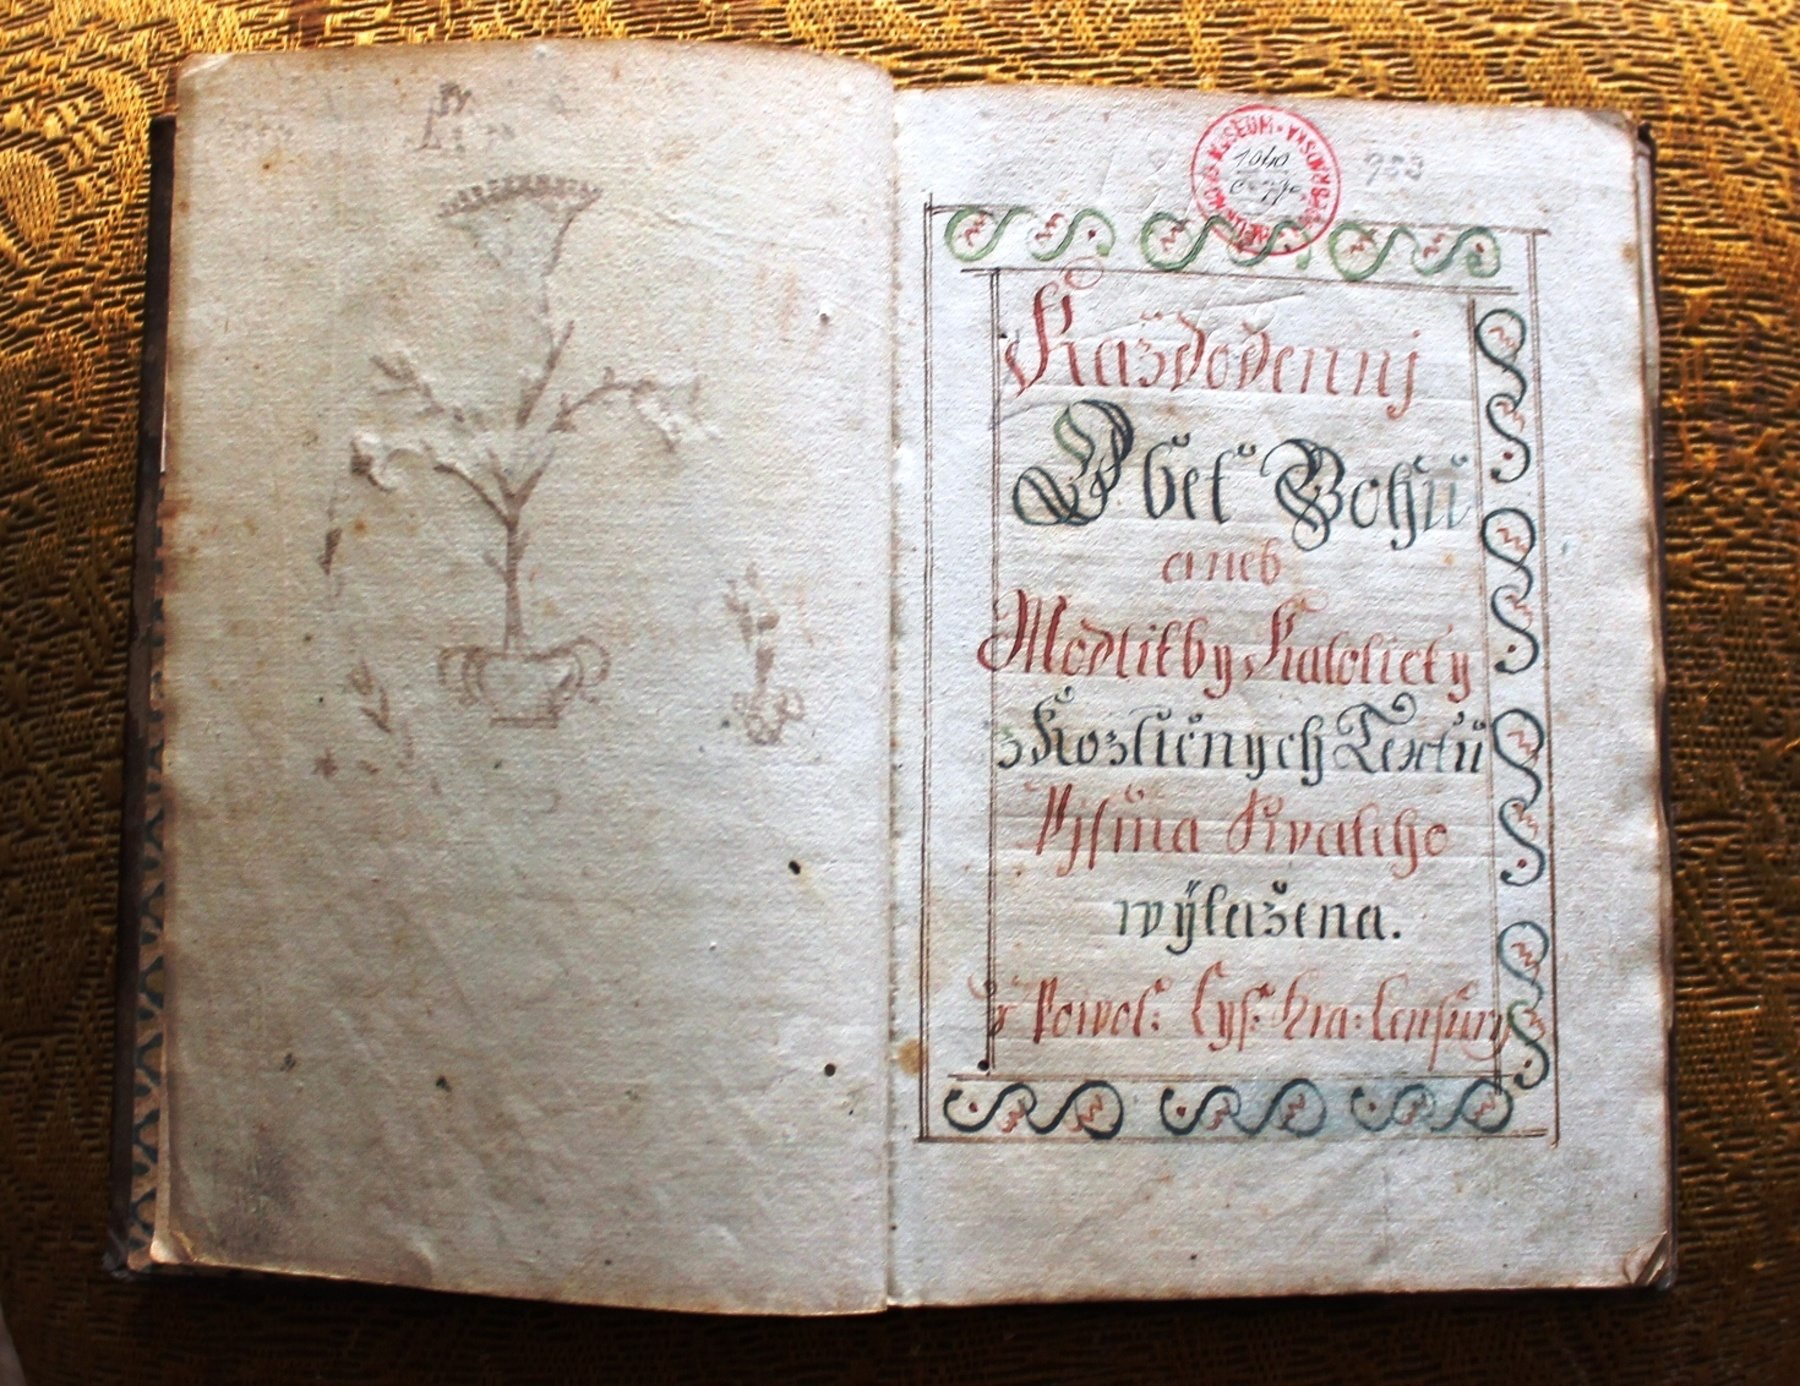 953
Každodennj
Oběť Bohu
aneb
Modlitby Katolicky
z Rozličnych Textů
Pjsma Swateho
wytažena.
s Powol: Cys: Kra: Censury